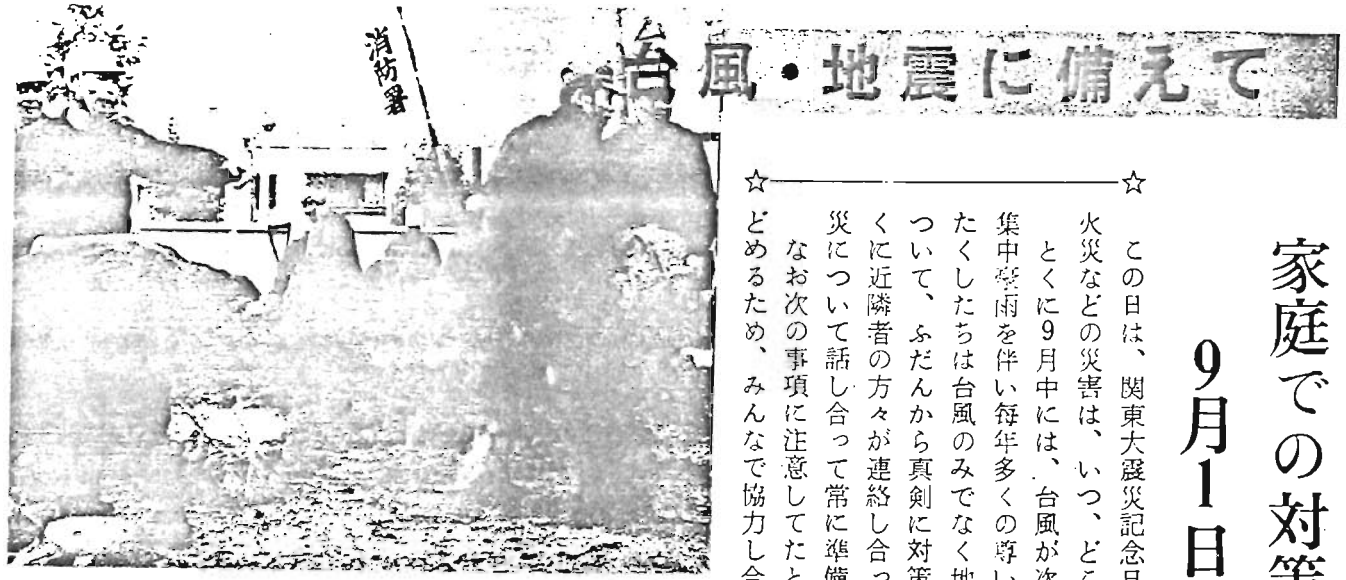 台風・地震に備えて
消防署
家庭での対策
9月1日
この日は、関東大震災記念日
火災などの災害は、いつ、どこ
とくに9月中には、台風が次
集中豪雨を伴い毎年多くの尊い
たくしたちは台風のみでなく地
ついて、ふだんから真剣に対策
くに近隣者の方々が連絡し合っ
災について話し合って常に準備
なお次の事項に注意してたと
どめるため、みんなで協力し合